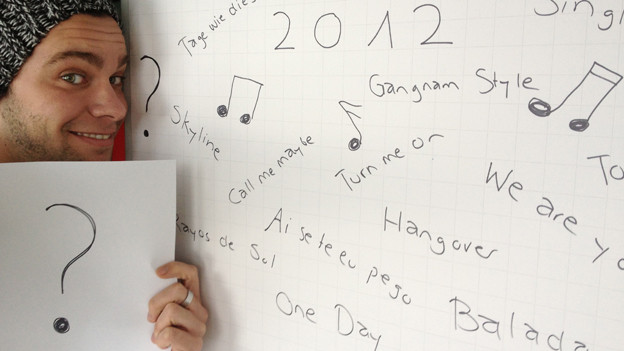 Tage wie dies
2012
Singl
?
Gangnam Style
Skyline
Call me maybe
Turn me on
To
We are yo
?
Rayos de Sol
Ai se te eu pego
Hangover
One Day
Balada